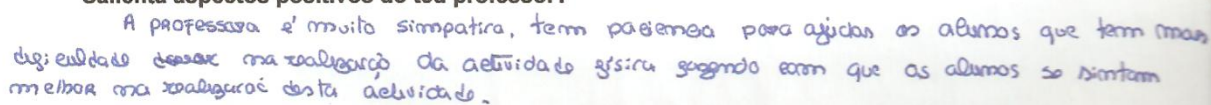 Salienta aspectos positivos do teu professor?
A professora é muito simpatica, tem paciencia para ajudar os alunos que tem mais
dificuldade na realização da actividade fisica fazendo com que os alunos se sintam
melhor na realização desta actividade.